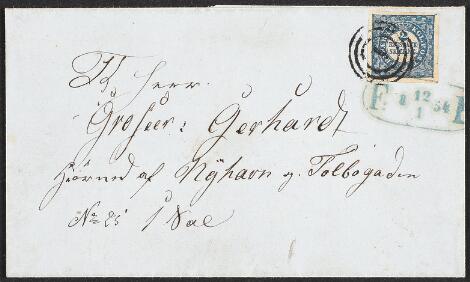 Hr Herr
Groserer: Gerhardt
Hjørnet af Nyhavn og Tolbogaden
No 25 1 Sal
F. 12 54
1